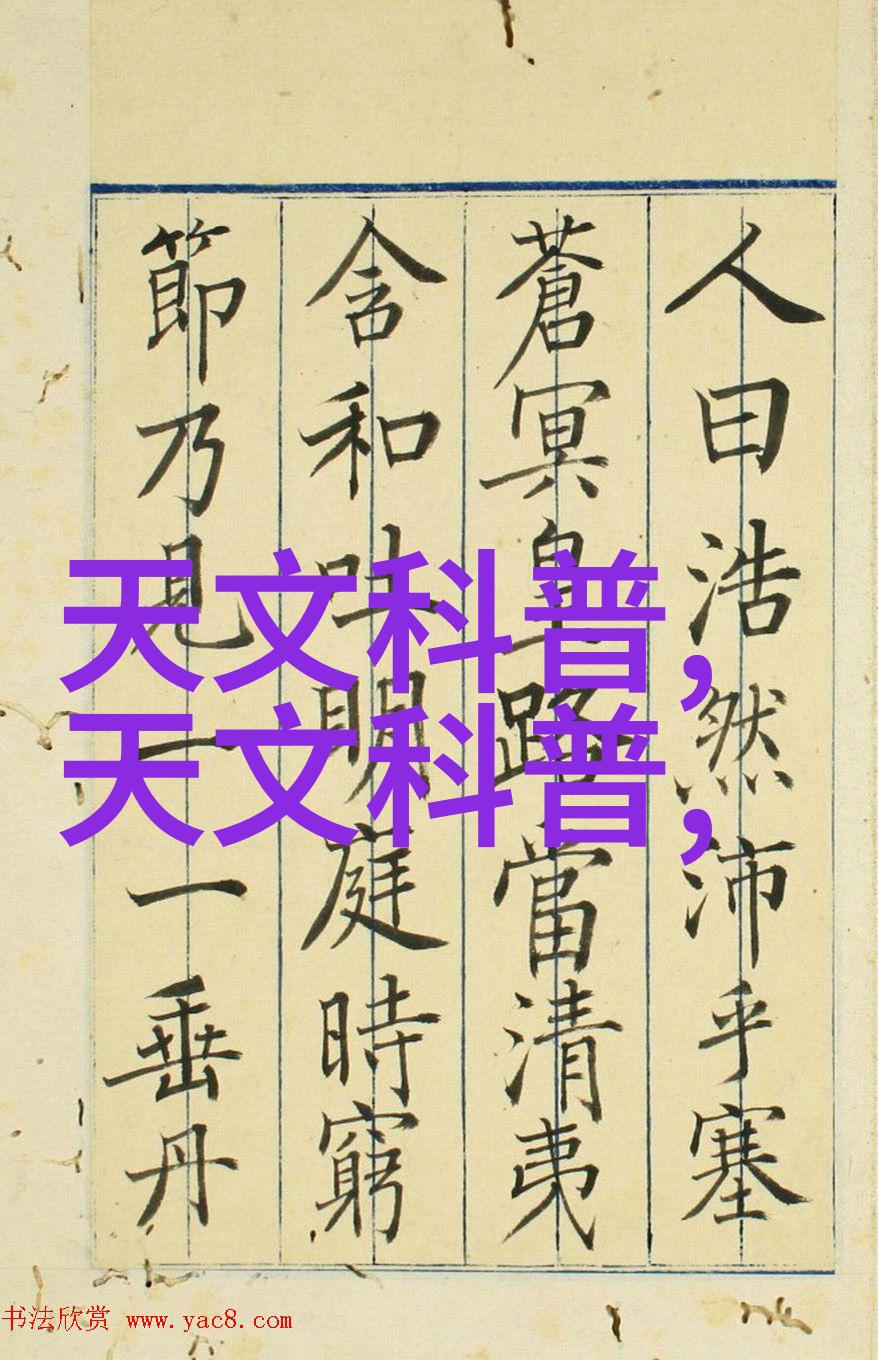 人曰浩然沛乎塞
蒼冥皇路當清夷
含和吐明庭時窮
節乃見一一垂丹
天文科普,
天文科普,
书法欣赏 www.yac8.com